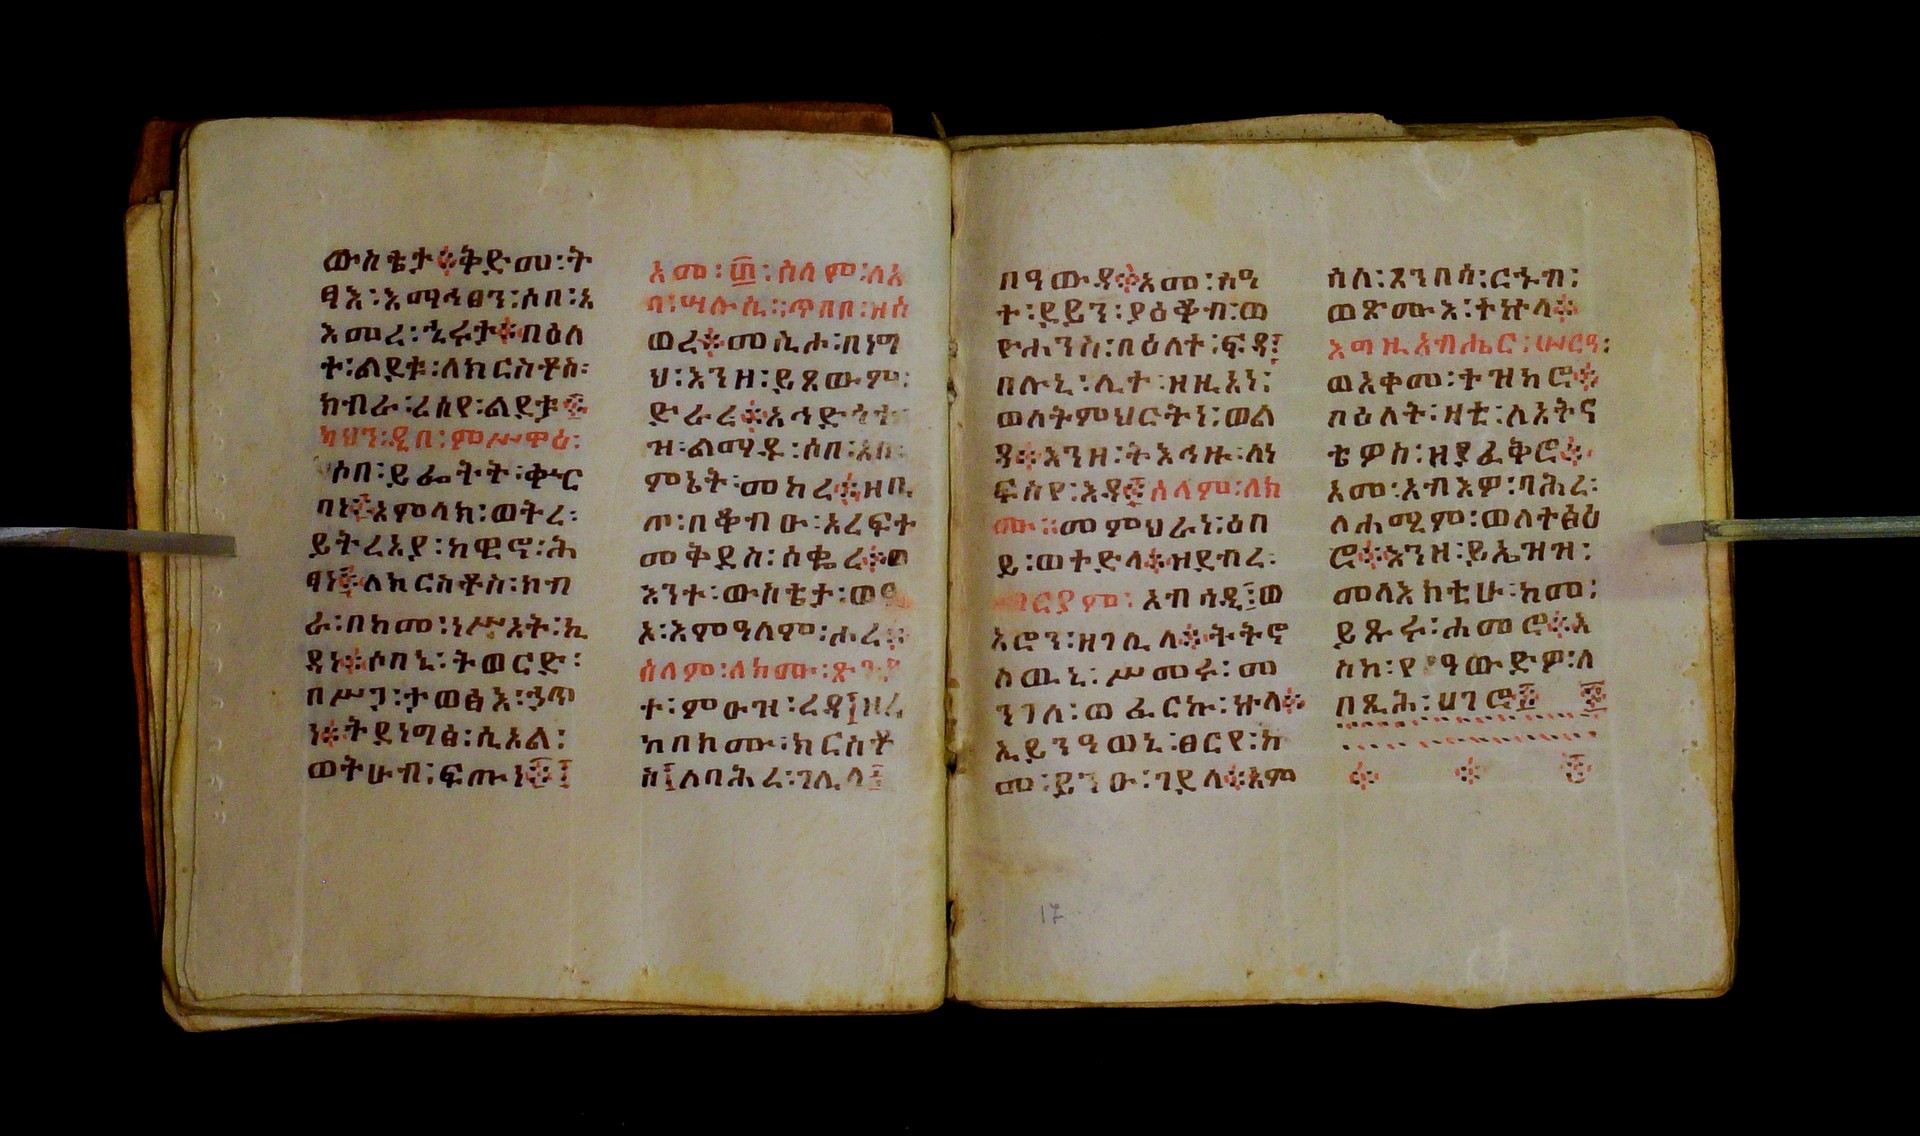 ውስቴታ፨ቅድመ፡ት
ፃእ፡እማኅፀን፡ሶበ፡አ
እመረ፡ኂሩታ፨በዕለ
ተ፡ልደቱ፡ለክርስቶስ፡
ክብራ፡ረሰየ፡ልደታ፨
ካህን፡ዲበ፡ምሥዋዕ፡
ሶበ፡ይፌትት፡ቍር
ባነ፨አምላክ፡ወትረ፡
ይትረአያ፡ከዊኖ፡ሕ
ፃነ፨ለክርስቶስ፡ክብ
ራ፡በከመ፡ነሥአት፡ኪ
ዳነ፨ሶበኒ፡ትወርድ፡
በሥጋ፡ታወፅእ፡ኃጥ
ነ፨ትደነግፅ፡ሲኦል፡
ወትሁብ፡ፍጡነ፨
እመ፡፡ሰላም፡ለአ
ባ፡ሣሉሲ፡ጥበበ፡ዝሰ
ወረ፨መሲሖ፡በነግ
ህ፡እንዘ፡ይጸውም፡
ድራረ፨
ዝ፡ልማዱ፡ሶበ፡
ምኔት፡መከረ፨ዘቤ
ጦ፡በቆብዑ፡አረፍተ
መቅደስ፡ሰቈረ፨
እንተ፡ውስቴታ፡
አ፡እምዓለም፡ሖረ፨
ሰላም፡ለክሙ፡
ተ፡ምዑዝ፡ረዳ፤
ከበከሙ፡ክርስቶ
ስ፤ለባሕረ፡ገሊላ፨
በዓውዳ፨አመ፡ሰዓ
ተ፡ደይን፡ያዕቆብ፡ወ
ዮሐንስ፡በዕለተ፡ፍዳ፤
በሉኒ፡ሊተ፡ዝዚአነ፡
ወለትምህርትነ፡ወል
ዳ፨እንዘ፡ትእኅዙ፡ለነ
ፍስየ፡እዳ፨ሰላም፡ለክ
ሙ፡መምህራነ፡ዕበ
ይ፡ወተድላ፨ዝደብረ፡
ማርያም፡አብ
አሮን፡ዘገሊላ፨ትትኖ
ስዉኒ፡ሥመሩ፡መ
ንገለ፡ወፈርኩ፡ኵላ፨
ኢይንዓወኒ፡ፀርየ፡ከ
መ፡ይንዑ፡ገደላ፨አም
ሰለ፡ጸንበሰ፡ርኁብ፡
ወጽሙእ፡ተኵላ፨
እግዚአብሔር፡ሠርዓ፡
ወአቀመ፡ተዝካሮ፨
በዕለት፡ዛቲ፡ለአትና
ቴዎስ፡ዘያፈቅሮ፨
አመ፡አብእዎ፡ባሕረ፡
ለሐሚም፡ወለተፅዕ
ሮ፨እንዘ፡ይኤዝዝ፡
መላእክቲሁ፡ከመ፡
ይጹሩ፡ሐመሮ፨እ
ስከ፡የዓውድዎ፡ለ
በጺሕ፡ሀገሮ፨
17